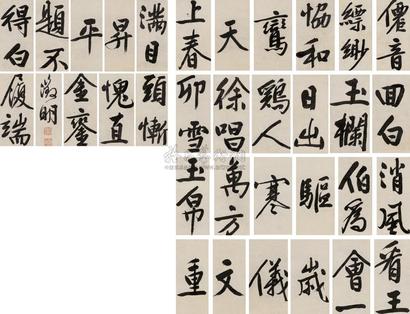 僊音縹緲恊和鸞天上春
回白玉欄日出雞人徐唱卯雪
消風伯為驅寒萬方玉帛
看王會一歲儀文重
履端
滿目昇平題不得白
頭慚愧直金鑾
徵明